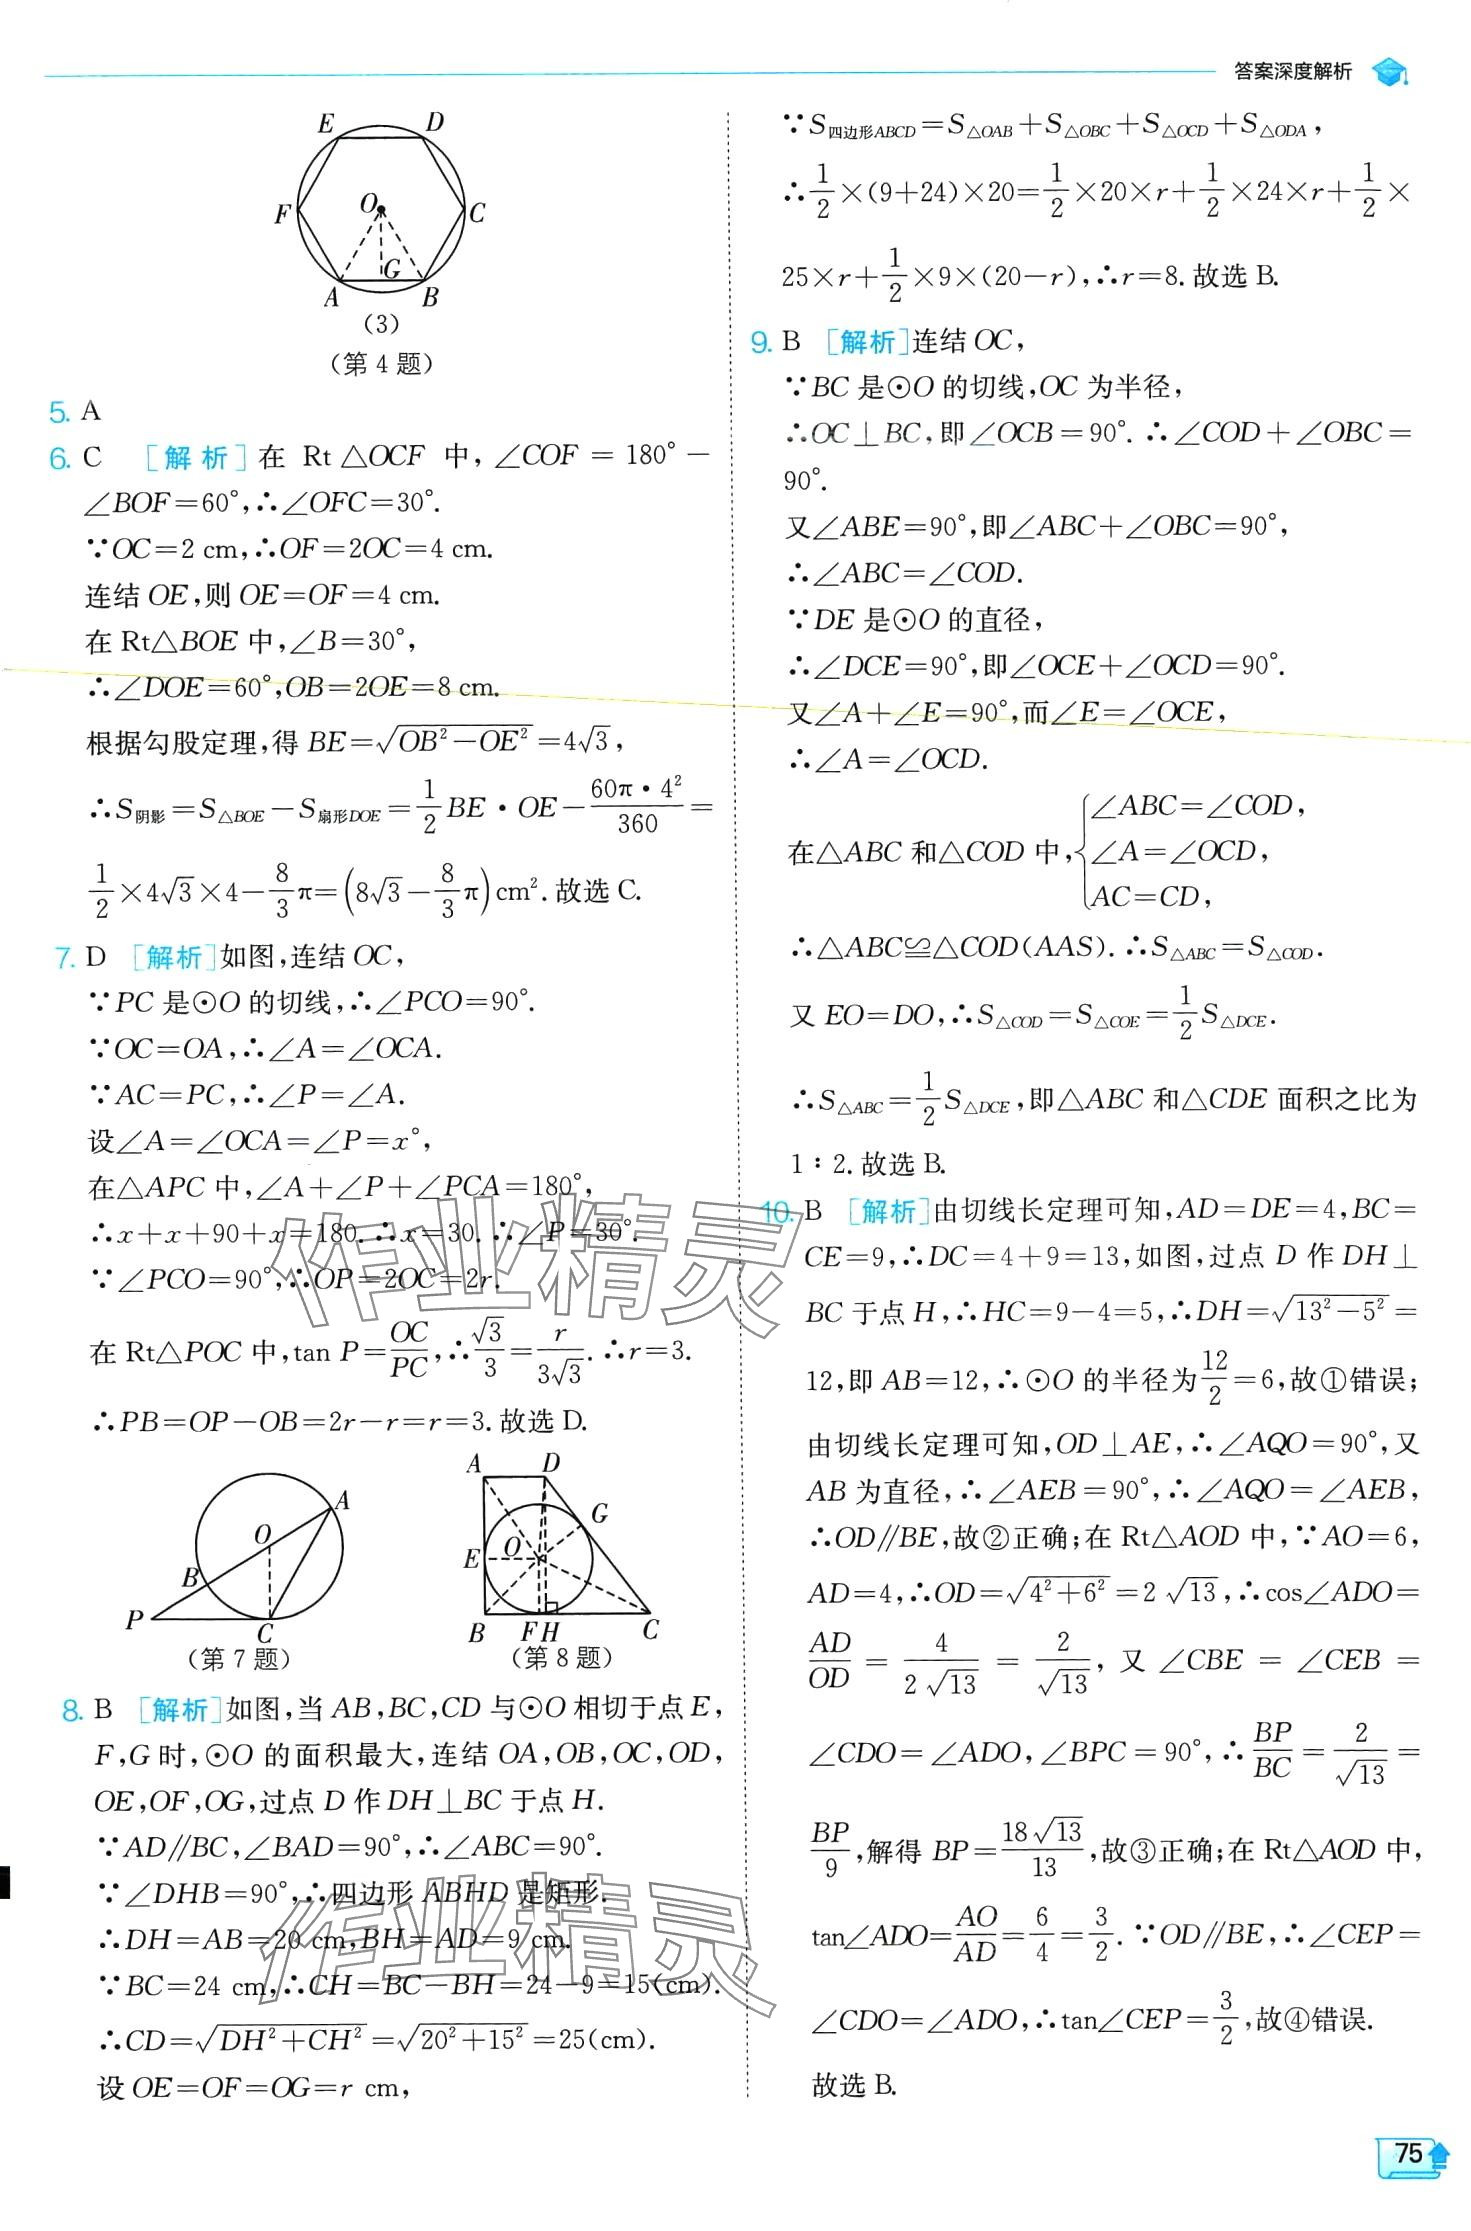 答案深度解析
E D
F O C
G
A B
(3)
(第 4 题)
5. A
6. C [解析]在 Rt△OCF 中,∠COF=180°-
∠BOF=60°,∴∠OFC=30°.
∵OC=2 cm,∴OF=2OC=4 cm.
连结 OE,则 OE=OF=4 cm.
在 Rt△BOE 中,∠B=30°,
∴∠DOE=60°,OB=2OE=8 cm.
根据勾股定理,得 BE=√(OB²-OE²)=4√3,
∴S阴影=S△BOE-S扇形DOE=1/2 BE·OE-60π·4²/360=
1/2×4√3×4-8/3π=(8√3-8/3π)cm².故选 C.
7. D [解析]如图,连结 OC,
∵PC 是⊙O 的切线,∴∠PCO=90°.
∵OC=OA,∴∠A=∠OCA.
∵AC=PC,∴∠P=∠A.
设∠A=∠OCA=∠P=x°,
在△APC 中,∠A+∠P+∠PCA=180°,
∴x+x+90+x=180.∴x=30.∴∠P=30°.
∵∠PCO=90°,∴OP=2OC=2r.
在 Rt△POC 中,tan P=OC/PC,∴√3/3=r/3√3.∴r=3.
∴PB=OP-OB=2r-r=r=3.故选 D.
A
O
B
P
C
(第 7 题)
A D
G
E O
B F H C
(第 8 题)
8. B [解析]如图,当 AB,BC,CD 与⊙O 相切于点 E,
F,G 时,⊙O 的面积最大,连结 OA,OB,OC,OD,
OE,OF,OG,过点 D 作 DH⊥BC 于点 H.
∵AD∥BC,∠BAD=90°,∴∠ABC=90°.
∵∠DHB=90°,∴四边形 ABHD 是矩形.
∴DH=AB=20 cm,BH=AD=9 cm.
∵BC=24 cm,∴CH=BC-BH=24-9=15(cm).
∴CD=√(DH²+CH²)=√(20²+15²)=25(cm).
设 OE=OF=OG=r cm,
∵S四边形ABCD=S△OAB+S△OBC+S△OCD+S△ODA,
∴1/2×(9+24)×20=1/2×20×r+1/2×24×r+1/2×
25×r+1/2×9×(20-r),∴r=8.故选 B.
9. B [解析]连结 OC,
∵BC 是⊙O 的切线,OC 为半径,
∴OC⊥BC,即∠OCB=90°.∴∠COD+∠OBC=
90°.
又∠ABE=90°,即∠ABC+∠OBC=90°,
∴∠ABC=∠COD.
∵DE 是⊙O 的直径,
∴∠DCE=90°,即∠OCE+∠OCD=90°.
又∠A+∠E=90°,而∠E=∠OCE,
∴∠A=∠OCD.
在△ABC 和△COD 中,{∠ABC=∠COD,
∠A=∠OCD,
AC=CD,
∴△ABC≌△COD(AAS).∴S△ABC=S△COD.
又 EO=DO,∴S△COD=S△COE=1/2 S△DCE.
∴S△ABC=1/2 S△DCE,即△ABC 和△CDE 面积之比为
1∶2.故选 B.
10. B [解析]由切线长定理可知,AD=DE=4,BC=
CE=9,∴DC=4+9=13,如图,过点 D 作 DH⊥
BC 于点 H,∴HC=9-4=5,∴DH=√(13²-5²)=
12,即 AB=12,∴⊙O 的半径为12/2=6,故①错误;
由切线长定理可知,OD⊥AE,∴∠AQO=90°,又
AB 为直径,∴∠AEB=90°,∴∠AQO=∠AEB,
∴OD∥BE,故②正确;在 Rt△AOD 中,∵AO=6,
AD=4,∴OD=√(4²+6²)=2√13,∴cos∠ADO=
AD/OD=4/2√13=2/√13,又∠CBE=∠CEB=
∠CDO=∠ADO,∠BPC=90°,∴BP/BC=2/√13=
BP/9,解得 BP=18√13/13,故③正确;在 Rt△AOD 中,
tan∠ADO=AO/AD=6/4=3/2.∵OD∥BE,∴∠CEP=
∠CDO=∠ADO,∴tan∠CEP=3/2,故④错误.
故选 B.
作业精灵
作业精灵
75